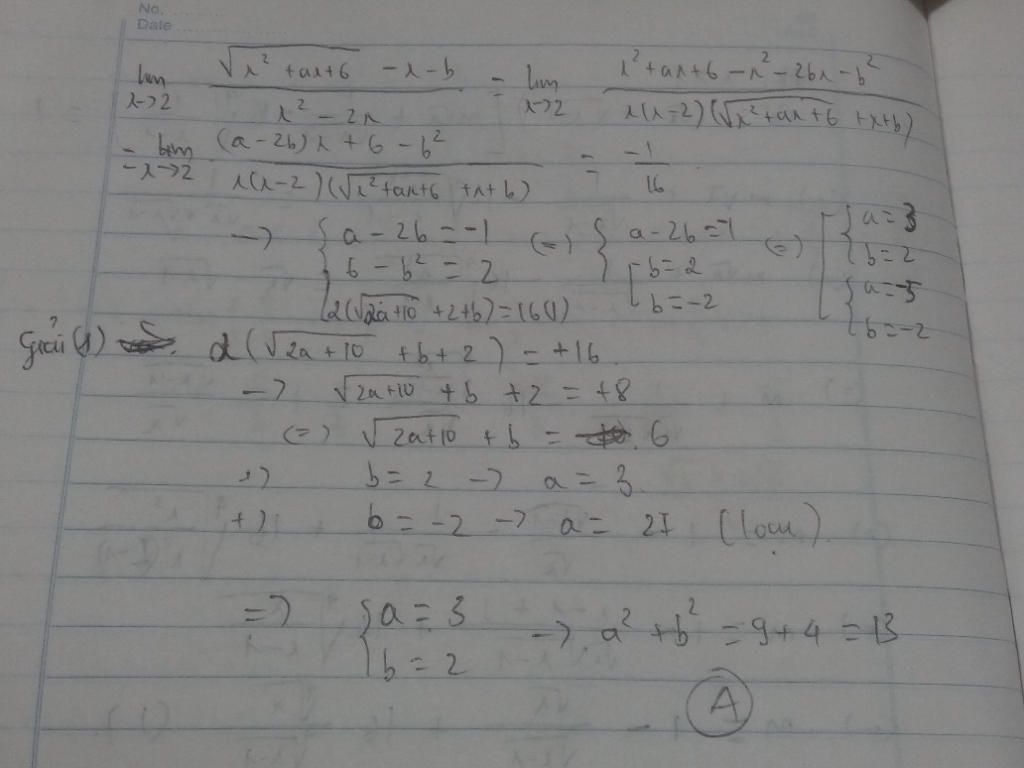 No.
Date
lim x→2 (√(x² + ax + 6) - x - b)/(x² - 2x) = lim x→2 (x² + ax + 6 - x² - 2bx - b²)/(x(x-2)(√(x² + ax + 6) + x + b))
= lim x→2 ((a - 2b)x + 6 - b²)/(x(x-2)(√(x² + ax + 6) + x + b)) = -1/16
→ { a - 2b = -1 (=) { a - 2b = -1 (=) [ { a = 3
6 - b² = 2 [ b = 2 b = 2
2(√(2a+10) + 2 + b) = 16 (1) b = -2 { a = -5
b = -2
Giải (1) 2(√(2a+10) + b + 2) = +16
→ √(2a+10) + b + 2 = +8
(=) √(2a+10) + b = 6
+) b = 2 → a = 3
+) b = -2 → a = 27 (loại)
=> { a = 3 → a² + b² = 9 + 4 = 13
b = 2
A